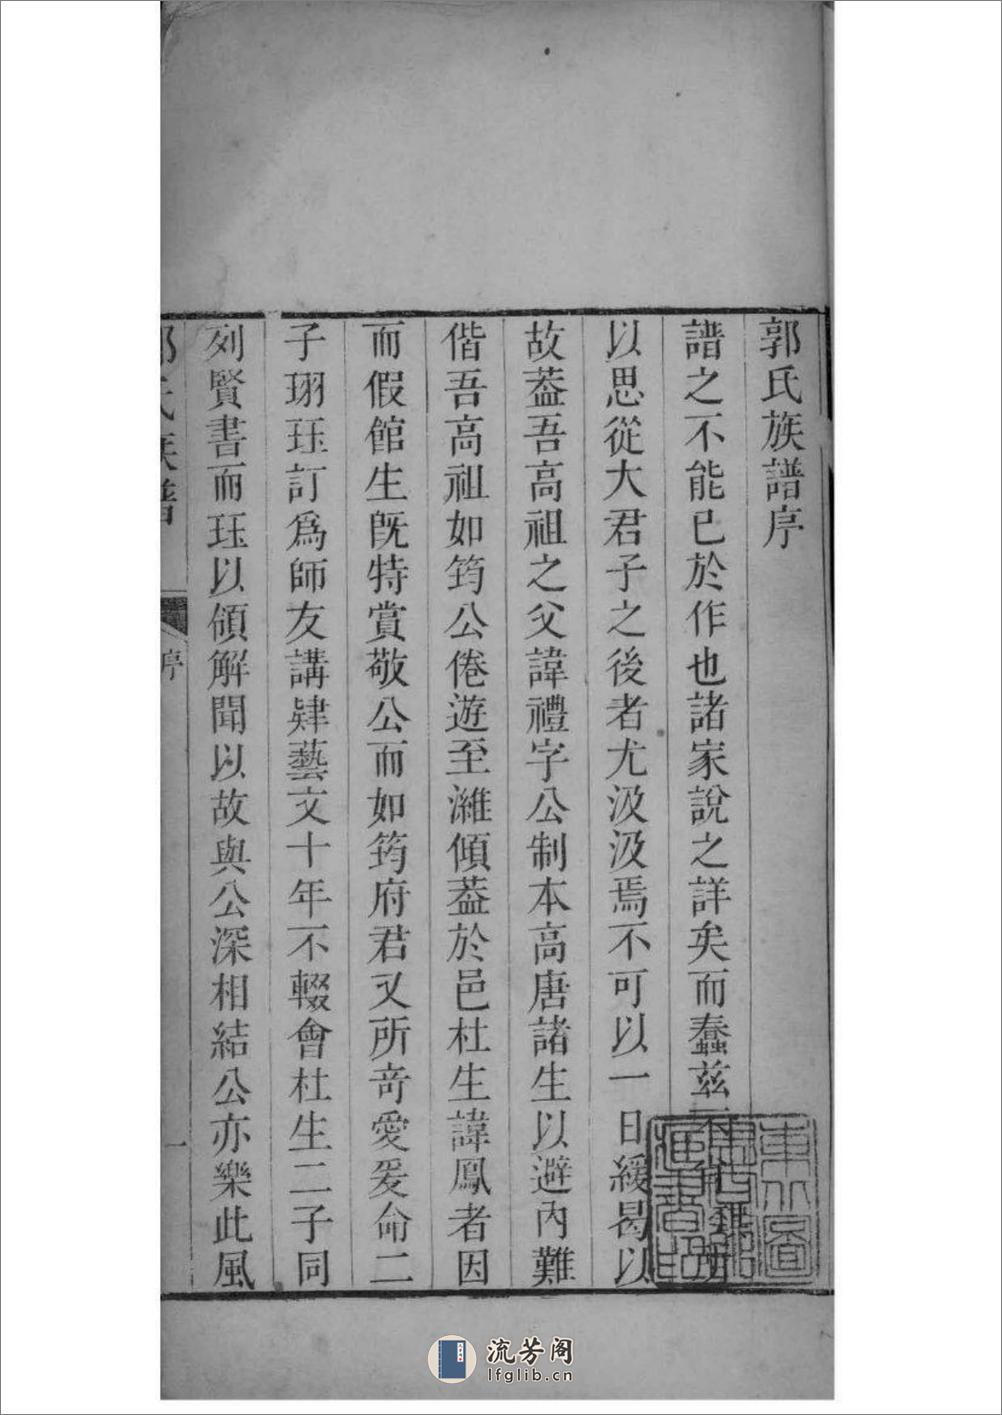 郭氏族譜序
譜之不能已於作也諸家說之詳矣而蠢茲不
以思從大君子之後者尤汲汲焉不可以一日緩曷以
故葢吾高祖之父諱禮字公制本高唐諸生以避內難
偕吾高祖如筠公倦遊至濰傾葢於邑杜生諱鳳者因
而假館生既特賞敬公而如筠府君又所奇愛爰命二
子珝珏訂爲師友講肄藝文十年不輟會杜生二子同
列賢書而珏以領解聞以故與公深相結公亦樂此風
郭氏族譜
序
一
流芳阁
lfglib.cn